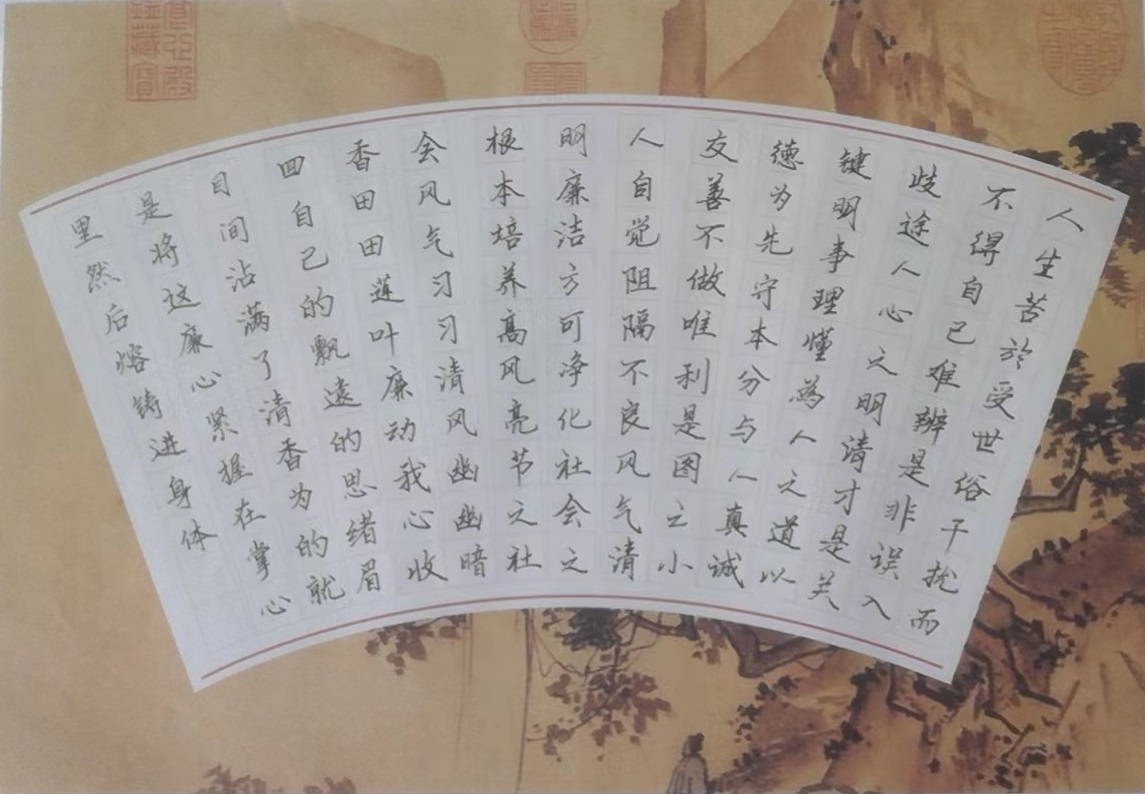 人生苦於受世俗干扰而
不得自己难辨是非误入
歧途人心之明清才是关
键明事理懂為人之道以
德为先守本分与人真诚
友善不做唯利是图之小
人自觉阻隔不良风气清
明廉洁方可净化社会之
根本培养高风亮节之社
会风气习习清风幽幽暗
香田田莲叶廉动我心收
四自己的飘遠的思绪眉
目间沾满了清香为的就
是将这廉心紧握在掌心
里然后熔铸进身体